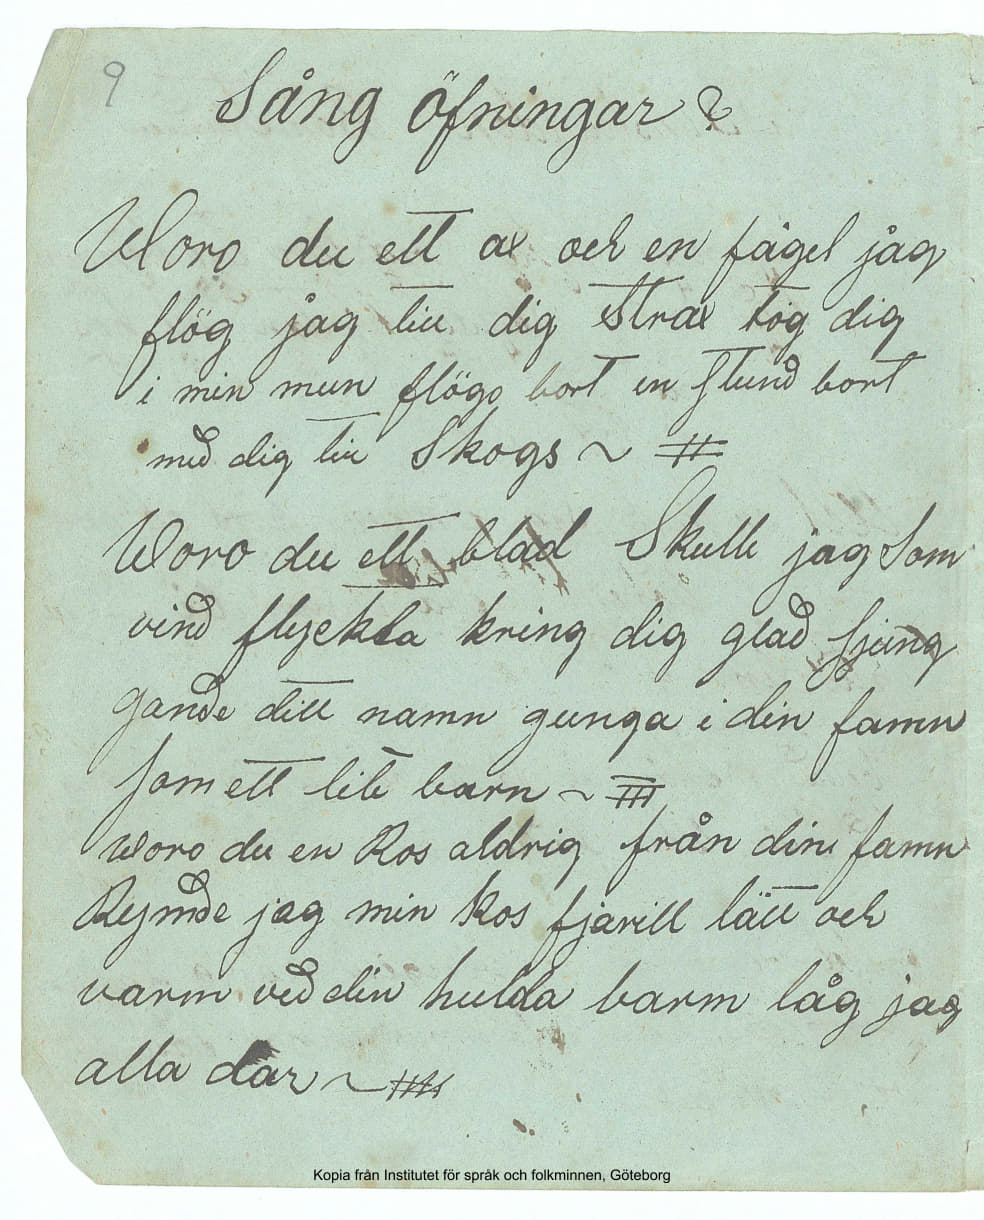 9
Sång öfningar
Woro du ett ax och en fågel jåg
flög jåg till dig Strax tog dig
i min mun flögo bort en Stund bort
med dig till Skogs ~ II
Woro du ett blad Skulle jag Som
vind flyckta kring dig glad Sjung
gande ditt namn gunga i din famn
Som ett lite barn ~ III
woro du en Ros aldrig från din famn
Rymde jag min kos fjarill lätt och
varm ved din hulda barm låg jag
alla dar ~ IIII
Kopia från Institutet för språk och folkminnen, Göteborg